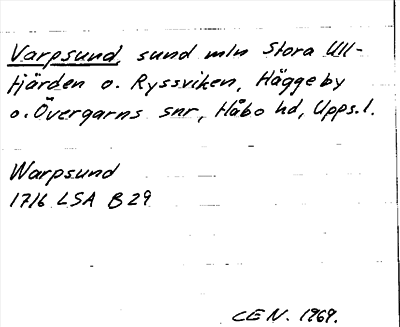 Varpsund, sund mln Stora Ull-
fjärden o. Ryssviken, Häggeby
o. Övergarns snr, Håbo hd, Upps.l.
Warpsund
1716 LSA B 29
CEN. 1969.